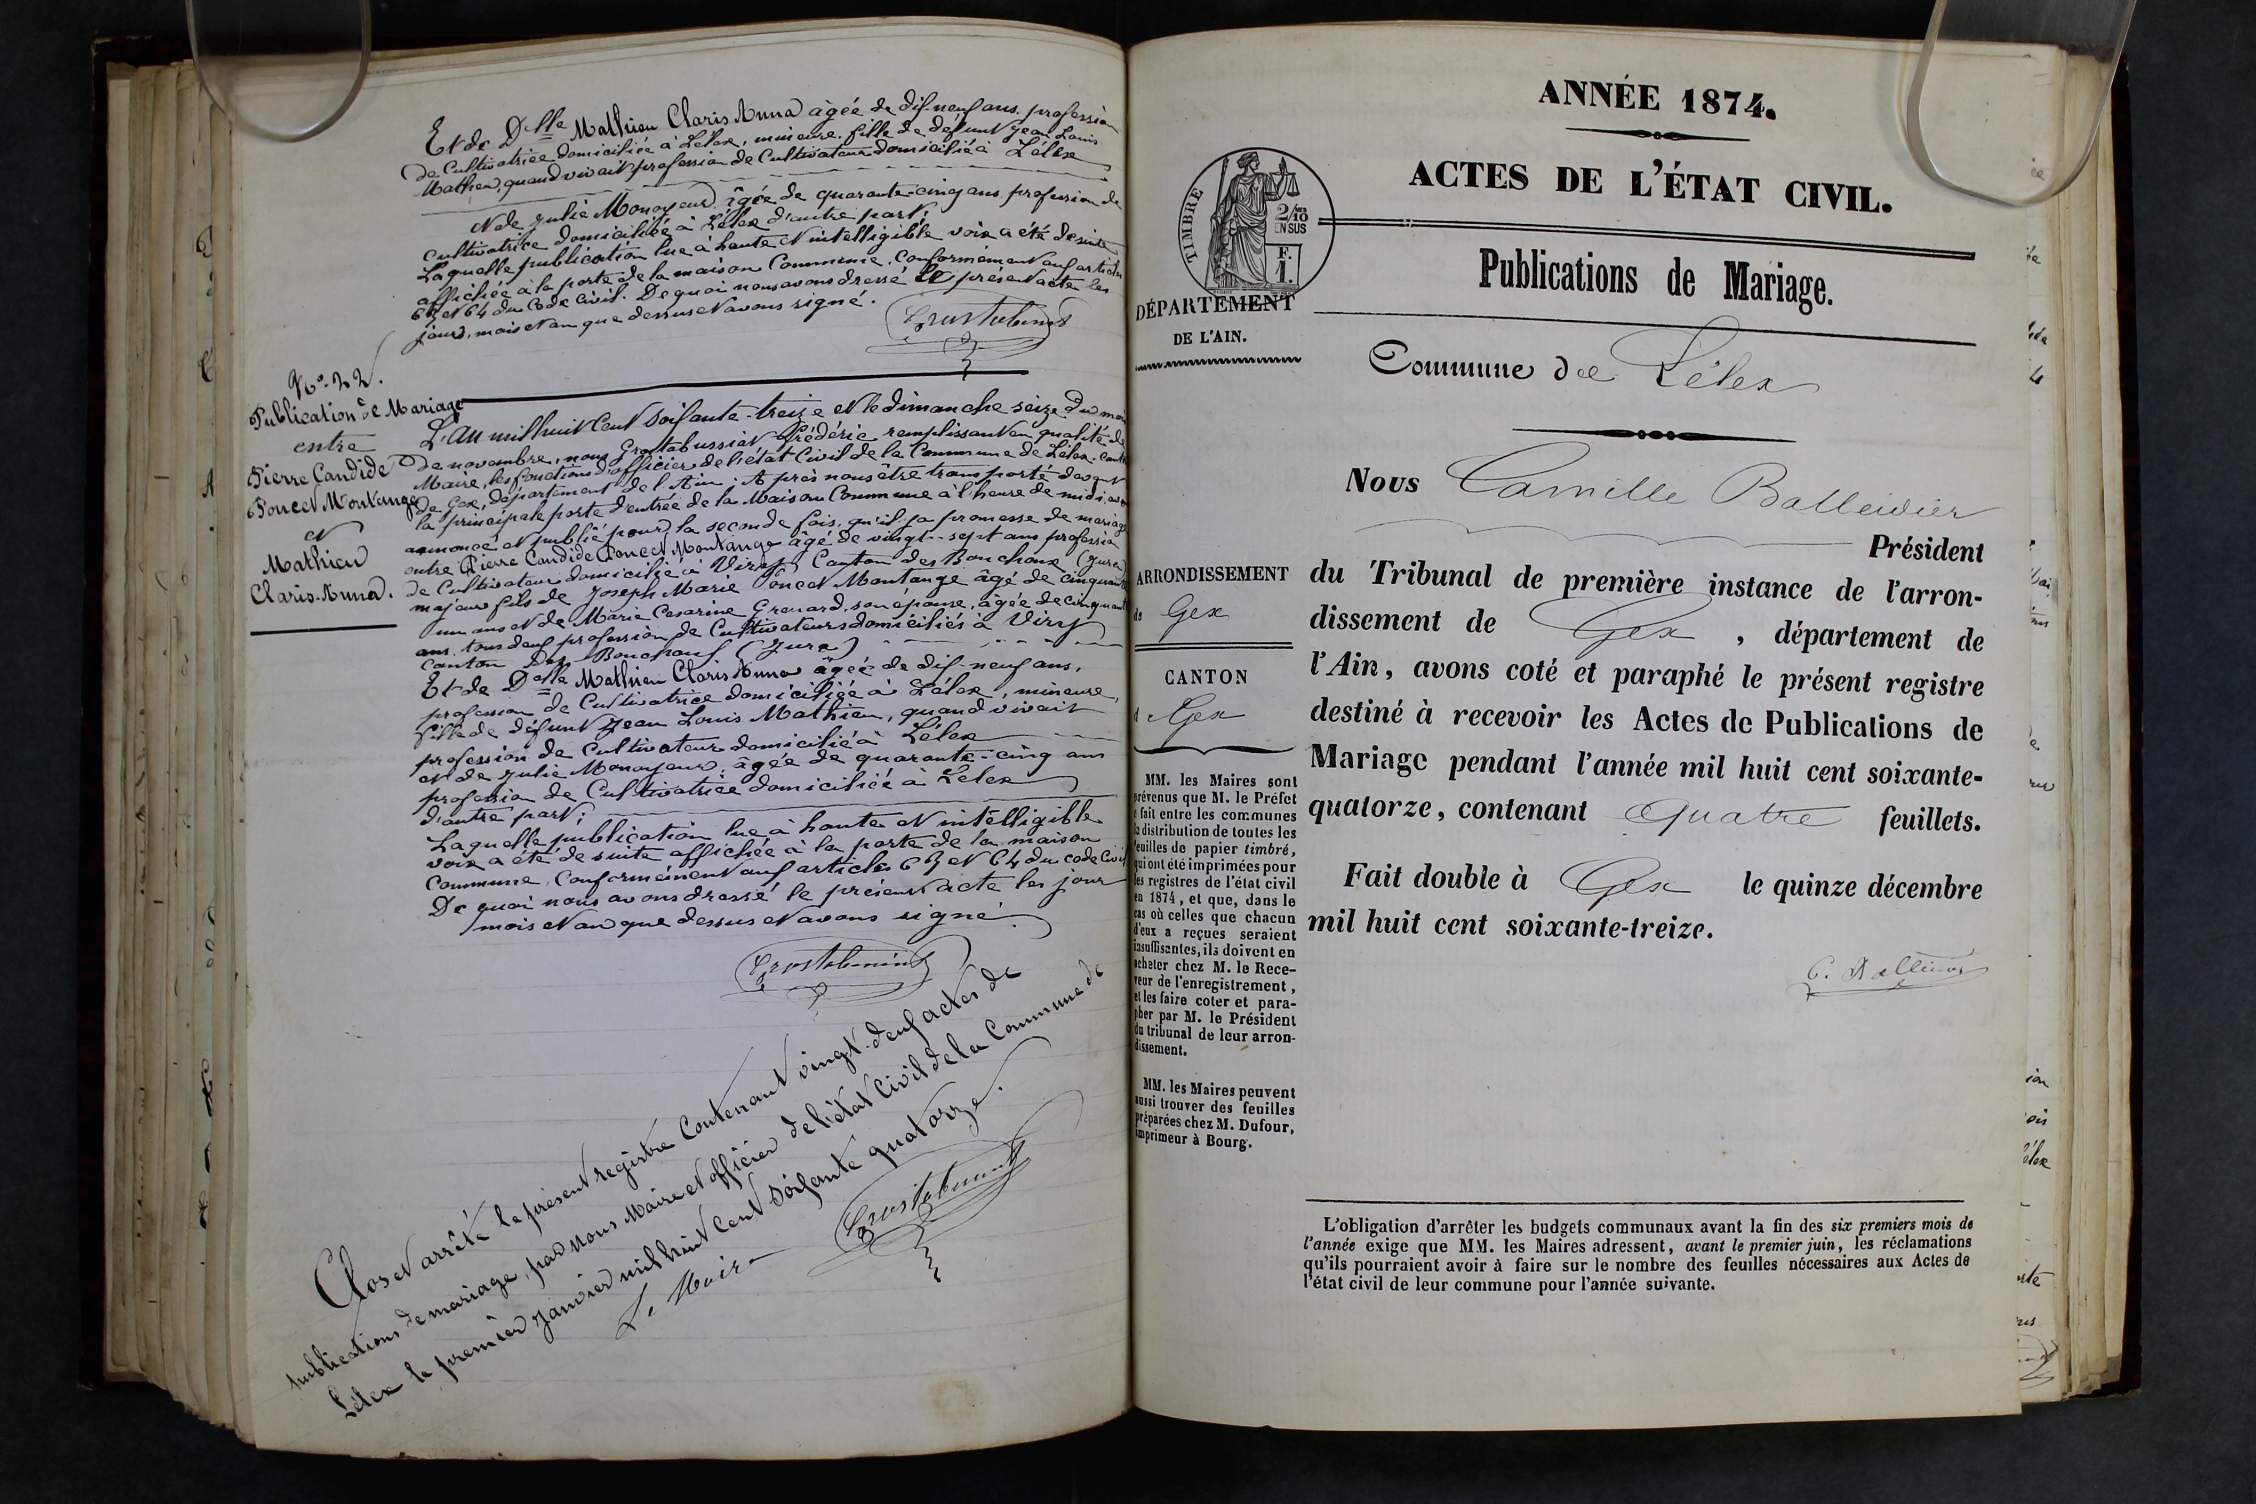 Et de Dlle Mathieu Claris Anna âgée de dix-neuf ans, profession
de Cultivatrice domiciliée à Lélex, mineure, fille de défunt Jean Louis
Mathieu, quand vivait profession de Cultivateur domicilié à Lélex
et de Julie Monoyeur, âgée de quarante-cinq ans, profession de
cultivatrice domiciliée à Lélex d'autre part;
Laquelle publication lue à haute et intelligible voix a été de suite
affichée à la porte de la maison Commune, conformément aux articles
63 et 64 du Code Civil. De quoi nous avons dressé le présent acte les
jour, mois et an que dessus et avons signé.
N° 22.
Publication de Mariage
entre
Pierre Candide
Poncet Montange
et
Mathieu
Claris Anna.
L'An mil huit Cent soixante-treize et le dimanche seize du mois
de novembre, nous Grostabussiat Frédéric remplissant en qualité de
Maire, les fonctions d'officier de l'état Civil de la Commune de Lélex, canton
de Gex, département de l'Ain. Après nous être transporté devant
la principale porte d'entrée de la Maison Commune à l'heure de midi, avons
annoncé et publié pour la seconde fois, qu'il y a promesse de mariage
entre Pierre Candide Poncet Montange âgé de vingt-sept ans profession
de Cultivateur domicilié à Viry Canton des Bouchoux (Jura)
majeur fils de Joseph Marie Poncet Montange âgé de cinquante
un ans et de Marie Cesarine Grenard, son épouse, âgée de cinquante
ans, tous deux profession de Cultivateurs domiciliés à Viry
Canton Des Bouchoux (Jura)
Et de Delle Mathieu Claris Anna âgée de dix-neuf ans,
profession de Cultivatrice domiciliée à Lélex, mineure,
fille de défunt Jean Louis Mathieu, quand vivait
profession de Cultivateur domicilié à Lélex
et de Julie Monoyeur, âgée de quarante-cinq ans
profession de Cultivatrice domiciliée à Lélex
d'autre part;
Laquelle publication lue à haute et intelligible
voix a été de suite affichée à la porte de la maison
Commune, Conformément aux articles 63 et 64 du code Civil
De quoi nous avons dressé le présent acte les jour
mois et an que dessus et avons signé.
Clos et arrêté le présent registre Contenant vingt-deux actes de
publications de mariage, par nous Maire et officier de l'état Civil de la Commune de
Lélex le premier Janvier mil huit Cent soixante quatorze.
Le Maire
ANNÉE 1874.
ACTES DE L'ÉTAT CIVIL.
Publications de Mariage.
TIMBRE
2/10
EN SUS
F.
1.
DÉPARTEMENT
DE L'AIN.
Commune de Lélex
Nous Camille Balleidier
Président
du Tribunal de première instance de l'arron-
dissement de Gex, département de
l'Ain, avons coté et paraphé le présent registre
destiné à recevoir les Actes de Publications de
Mariage pendant l'année mil huit cent soixante-
quatorze, contenant quatre feuillets.
Fait double à Gex le quinze décembre
mil huit cent soixante-treize.
C. Balleidier
ARRONDISSEMENT
de Gex
CANTON
d Gex
MM. les Maires sont
prévenus que M. le Préfet
a fait entre les communes
la distribution de toutes les
feuilles de papier timbré,
qui ont été imprimées pour
les registres de l'état civil
en 1874, et que, dans le
cas où celles que chacun
d'eux a reçues seraient
insuffisantes, ils doivent en
acheter chez M. le Rece-
veur de l'enregistrement,
et les faire coter et para-
pher par M. le Président
du tribunal de leur arron-
dissement.
MM. les Maires peuvent
aussi trouver des feuilles
préparées chez M. Dufour,
imprimeur à Bourg.
L'obligation d'arrêter les budgets communaux avant la fin des six premiers mois de
l'année exige que MM. les Maires adressent, avant le premier juin, les réclamations
qu'ils pourraient avoir à faire sur le nombre des feuilles nécessaires aux Actes de
l'état civil de leur commune pour l'année suivante.